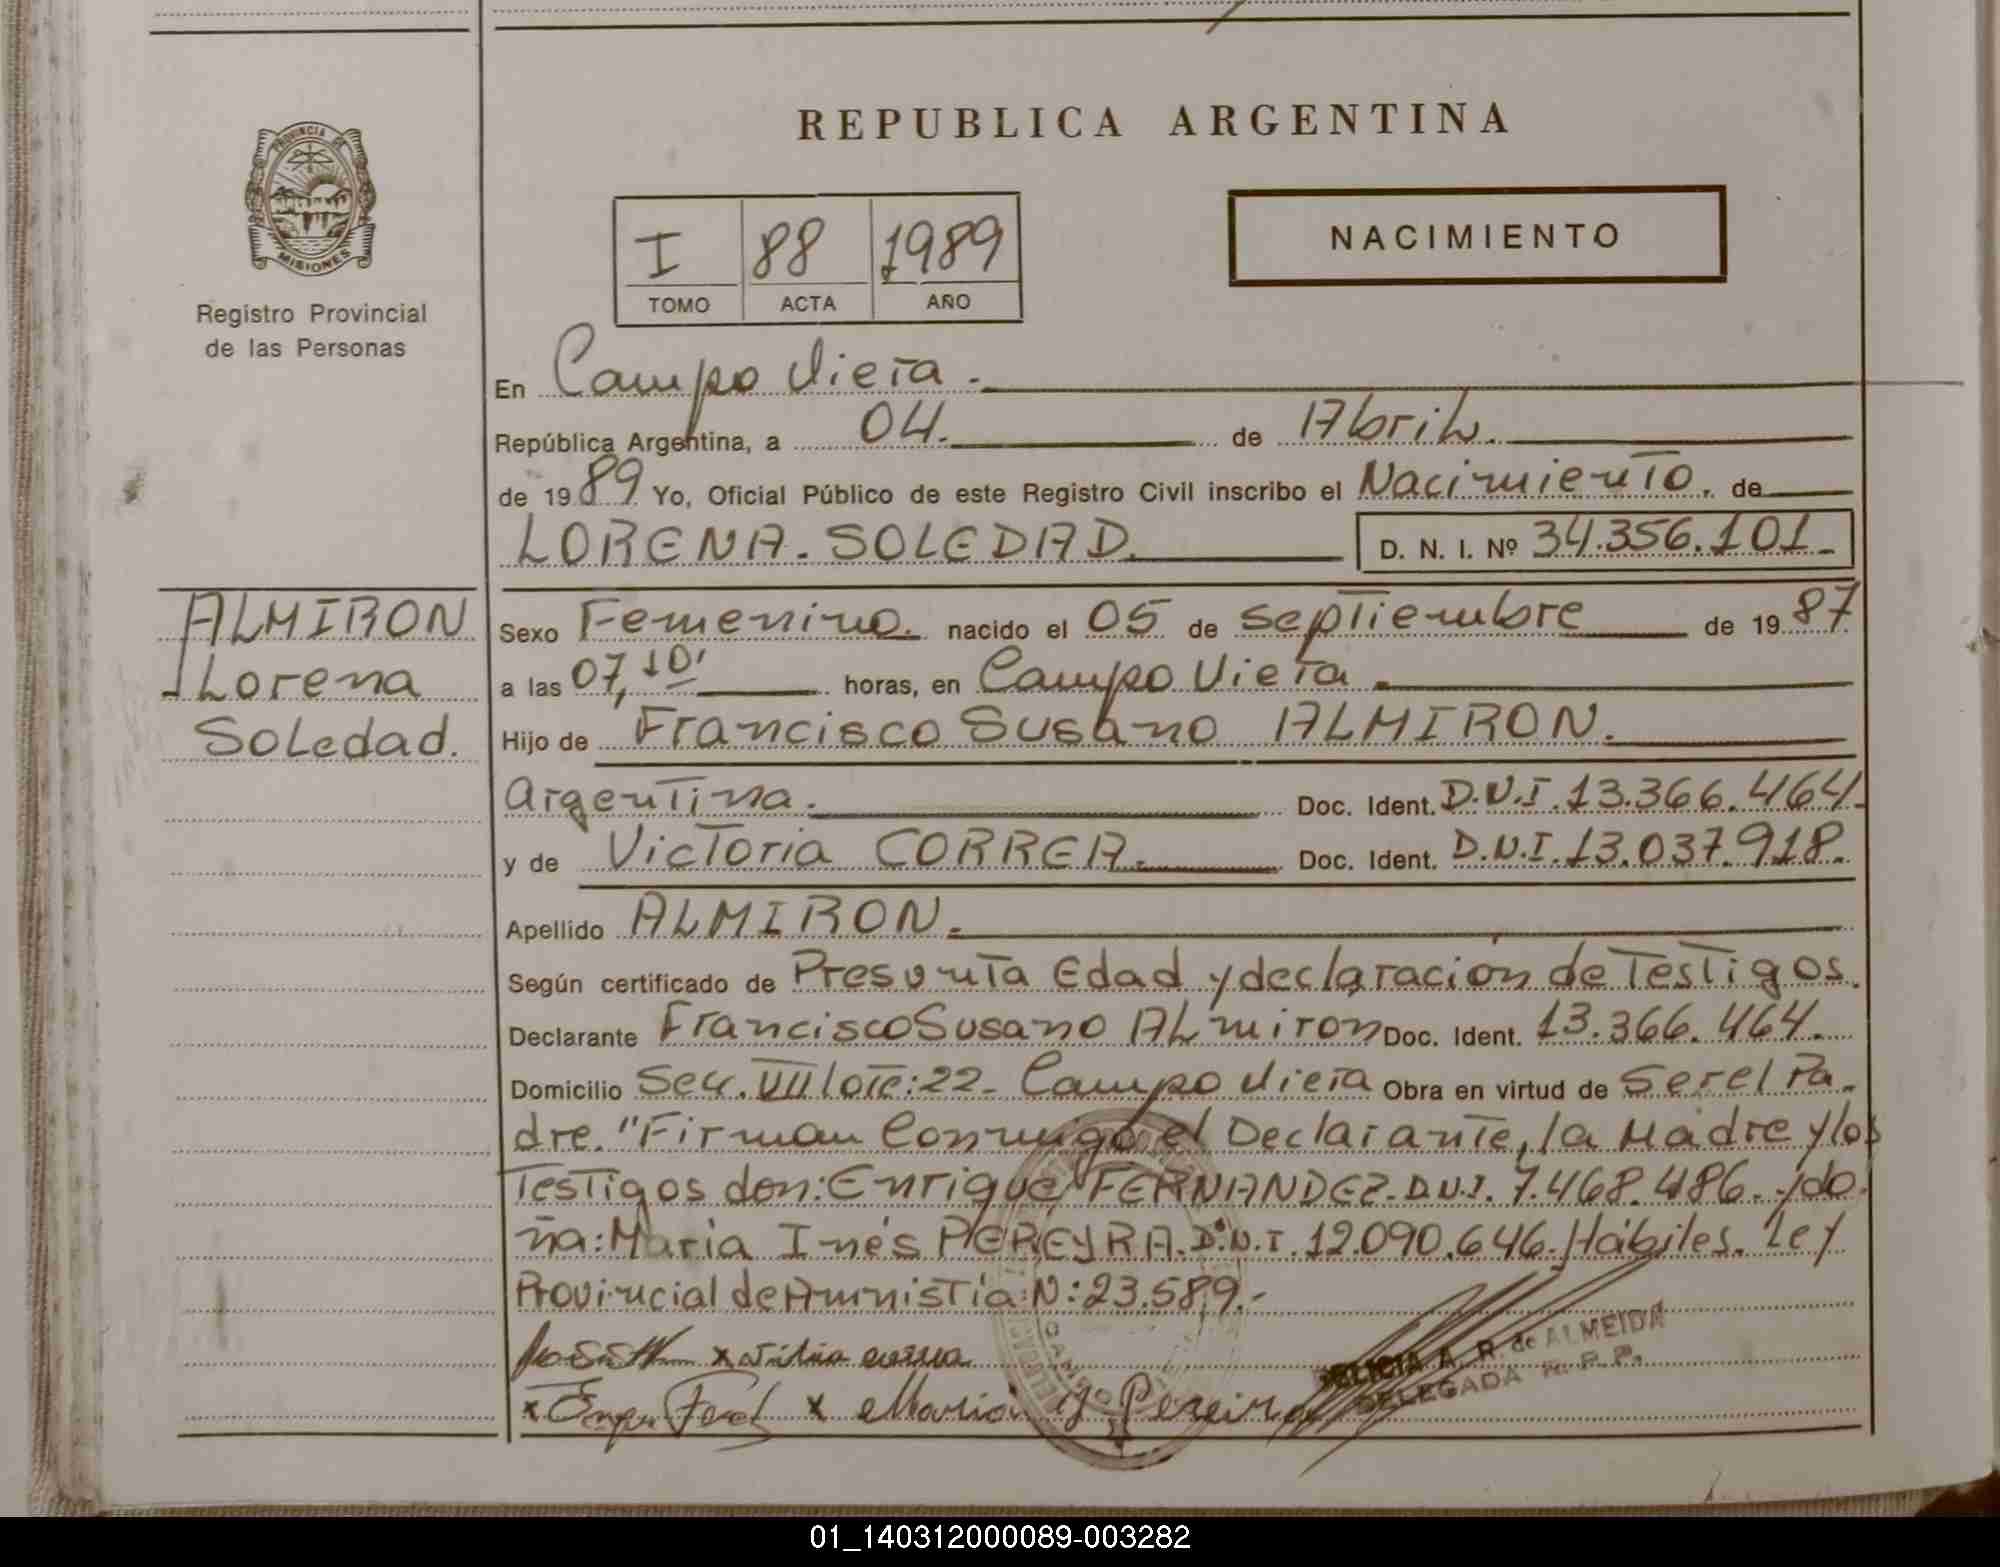 REPUBLICA ARGENTINA
PROVINCIA DE
MISIONES
Registro Provincial
de las Personas
I 88 1989
TOMO ACTA AÑO
NACIMIENTO
En Campo Viera.
República Argentina, a 04. de Abril.
de 1989 Yo, Oficial Público de este Registro Civil inscribo el Nacimiento. de
LORENA. SOLEDAD. D. N. I. Nº 34.356.101
ALMIRON
Lorena
Soledad.
Sexo Femenino. nacido el 05 de septiembre de 1987
a las 07,10' horas, en Campo Viera.
Hijo de Francisco Susano ALMIRON.
Argentina. Doc. Ident. D.N.I. 13.366.464
y de Victoria CORREA. Doc. Ident. D.N.I. 13.037.918.
Apellido ALMIRON.
Según certificado de Presunta Edad y declaración de Testigos.
Declarante Francisco Susano ALmiron Doc. Ident. 13.366.464.
Domicilio Sec. VII Lote: 22- Campo Viera Obra en virtud de Ser el Pa-
dre. "Firman Conmigo el Declarante, la Madre y los
Testigos don: Enrique FERNANDEZ. D.N.I. 7.468.486. y do-
ña: Maria Inés PEREYRA. D.N.I. 12.090.646. Hábiles. Ley
Provincial de Amnistía: N: 23.589.-
x correa
x x Maria Y. Pereira
A. R. de ALMEIDA
DELEGADA R. P. P.
01_140312000089-003282